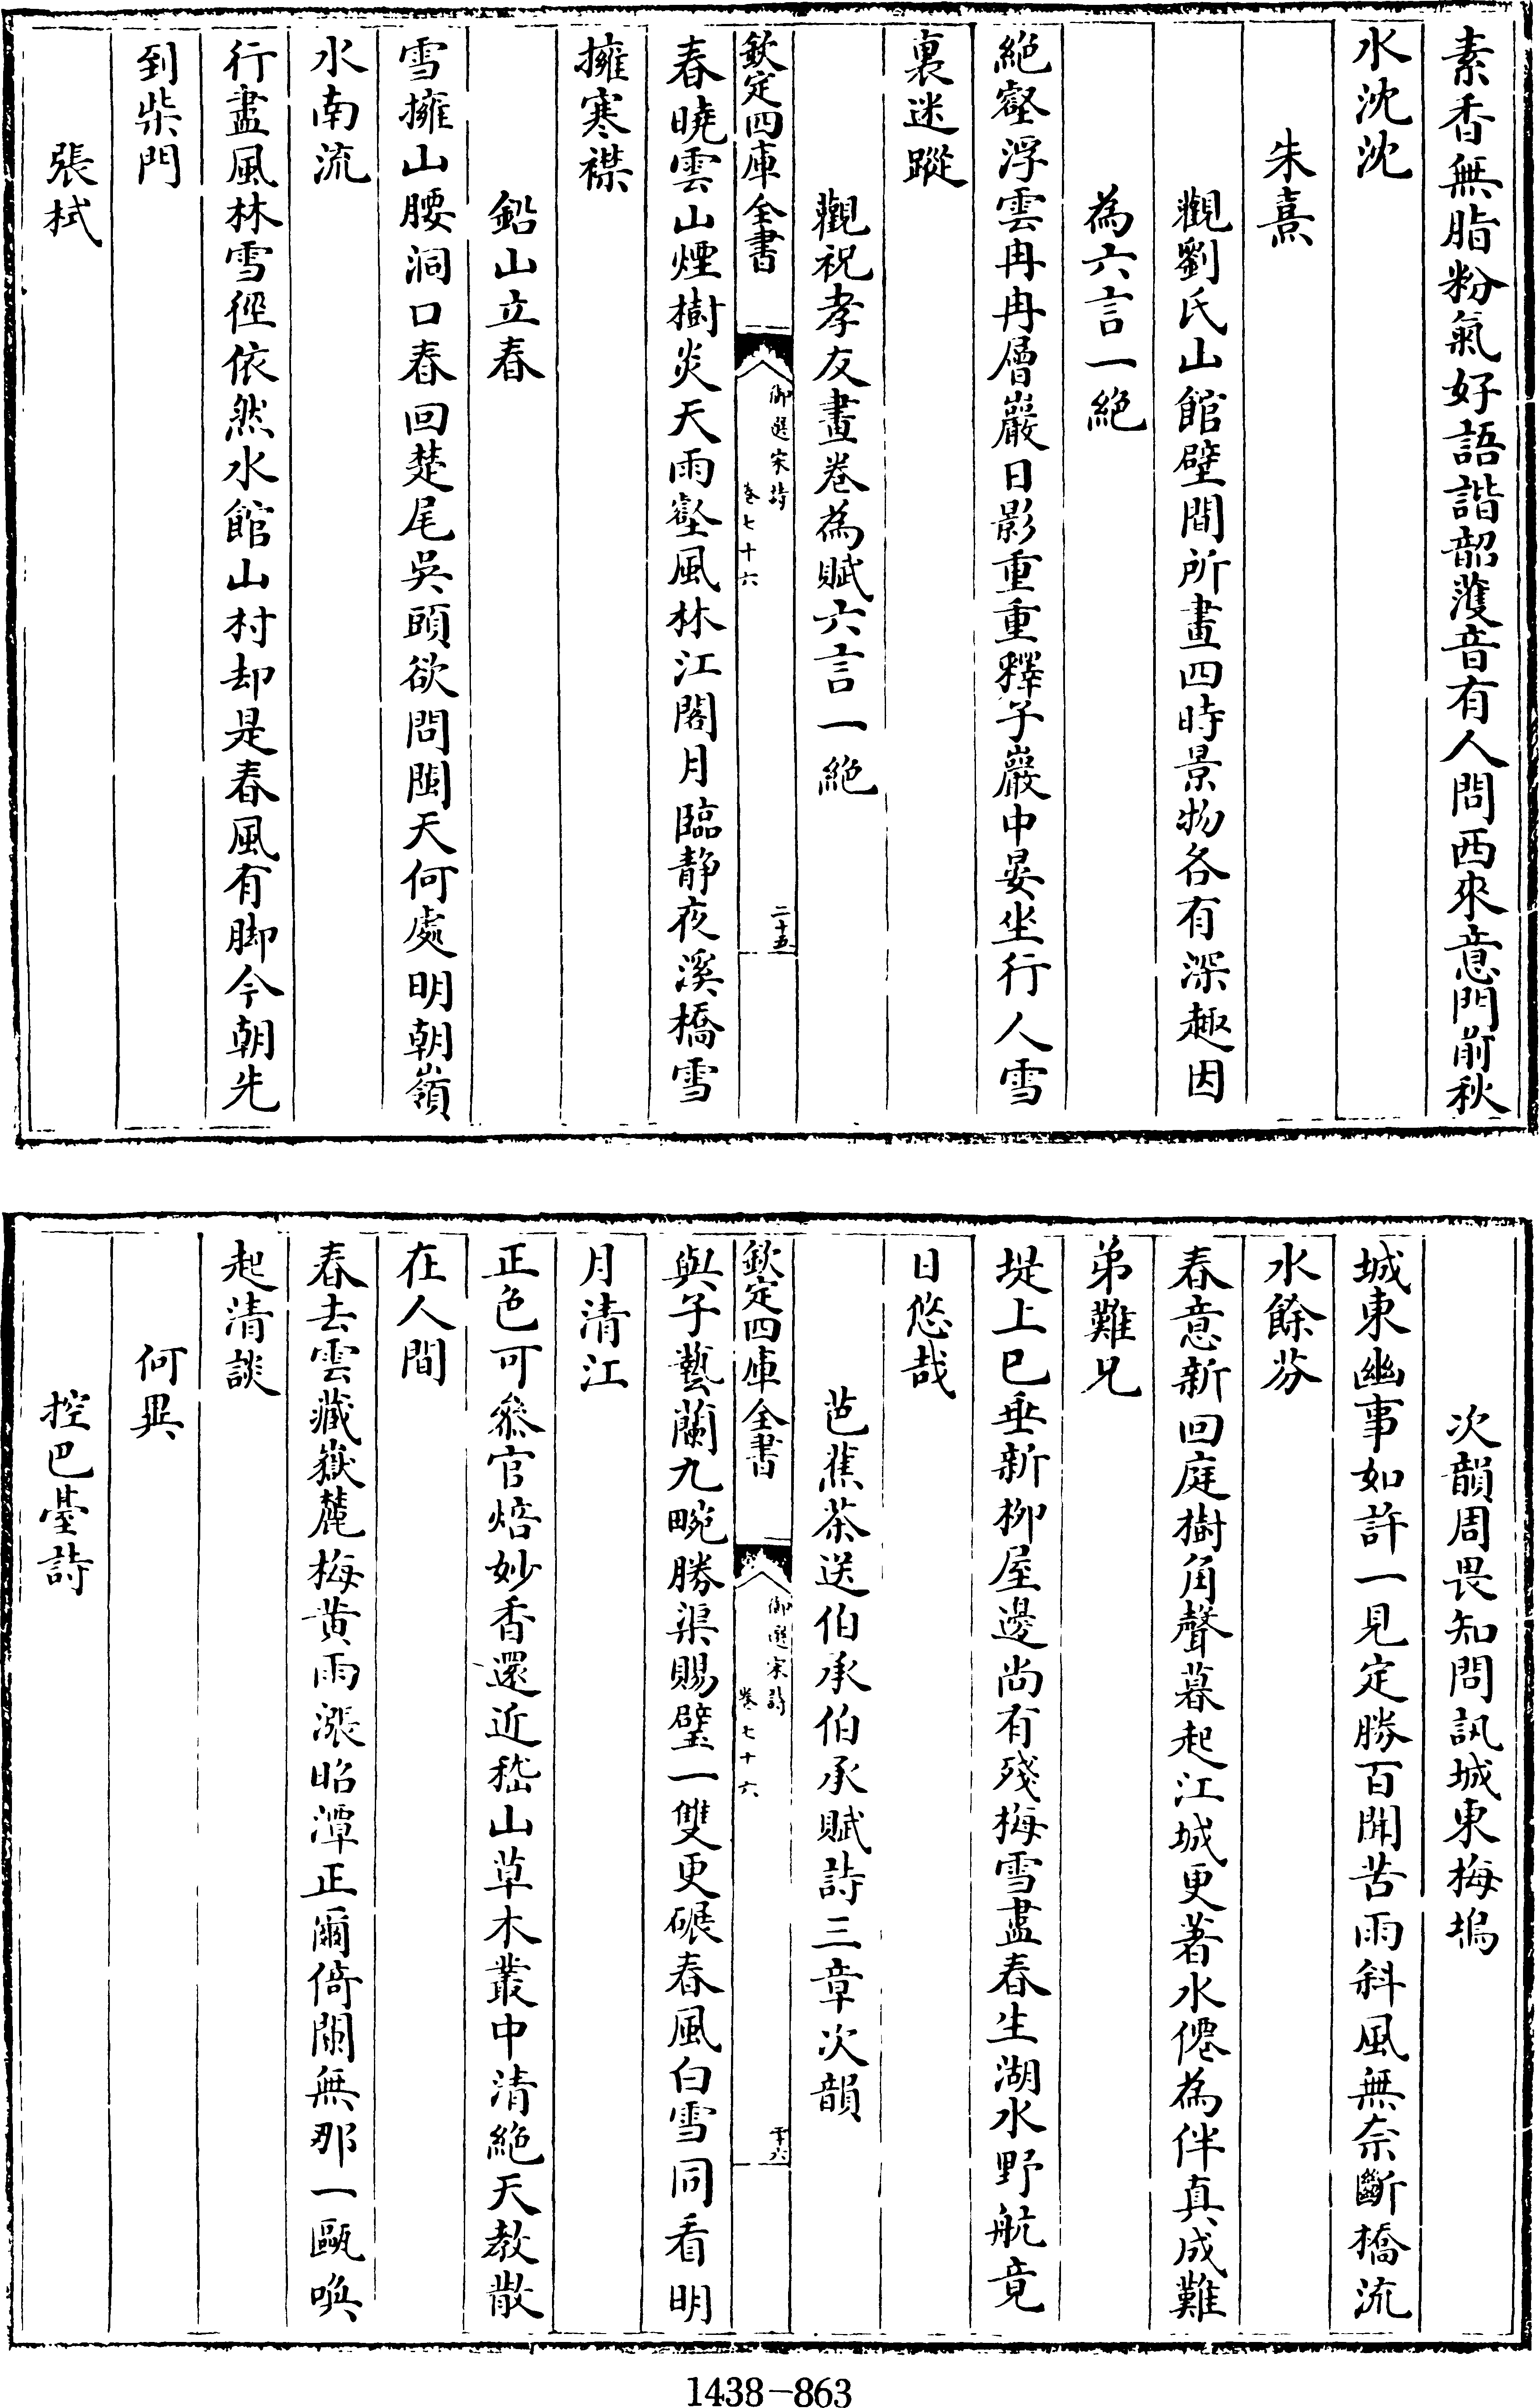 素香無脂粉氣好語諧韶濩音有人問西來意門前秋
水沈沈
朱熹
觀劉氏山館壁間所畫四時景物各有深趣因
為六言一絶
絶壑浮雲冉冉層巖日影重重釋子巖中晏坐行人雪
裏迷蹤
觀祝孝友畫卷為賦六言一絶
欽定四庫全書
御選宋詩
卷七十六
二十五
春曉雲山煙樹炎天雨壑風林江閣月臨静夜溪橋雪
擁寒襟
鉛山立春
雪擁山腰洞口春回楚尾吳頭欲問閩天何處明朝嶺
水南流
行盡風林雪徑依然水館山村却是春風有脚今朝先
到柴門
張栻
次韻周畏知問訊城東梅塢
城東幽事如許一見定勝百聞苦雨斜風無奈斷橋流
水餘芬
春意新回庭樹角聲暮起江城更著水僊為伴真成難
弟難兄
堤上已垂新柳屋邊尚有殘梅雪盡春生湖水野航竟
日悠哉
芭蕉茶送伯承伯承賦詩三章次韻
欽定四庫全書
御選宋詩
卷七十六
二十六
與子藝蘭九畹勝渠賜璧一雙更碾春風白雪同看明
月清江
正色可叅官焙妙香還近嵇山草木叢中清絶天教散
在人間
春去雲藏嶽麓梅黄雨漲昭潭正爾倚闌無那一甌喚
起清談
何異
控巴臺詩
1438-863